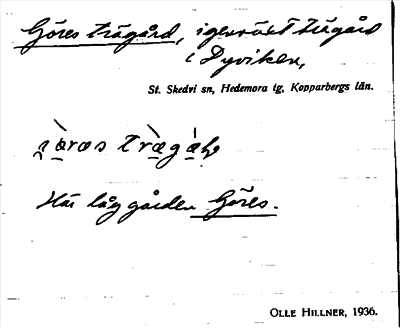 Göres trägård, igenväxt trägård
i Dyviken,
St. Skedvi sn, Hedemora tg, Kopparbergs län.
Här låg gården Göres.
OLLE HILLNER, 1936.